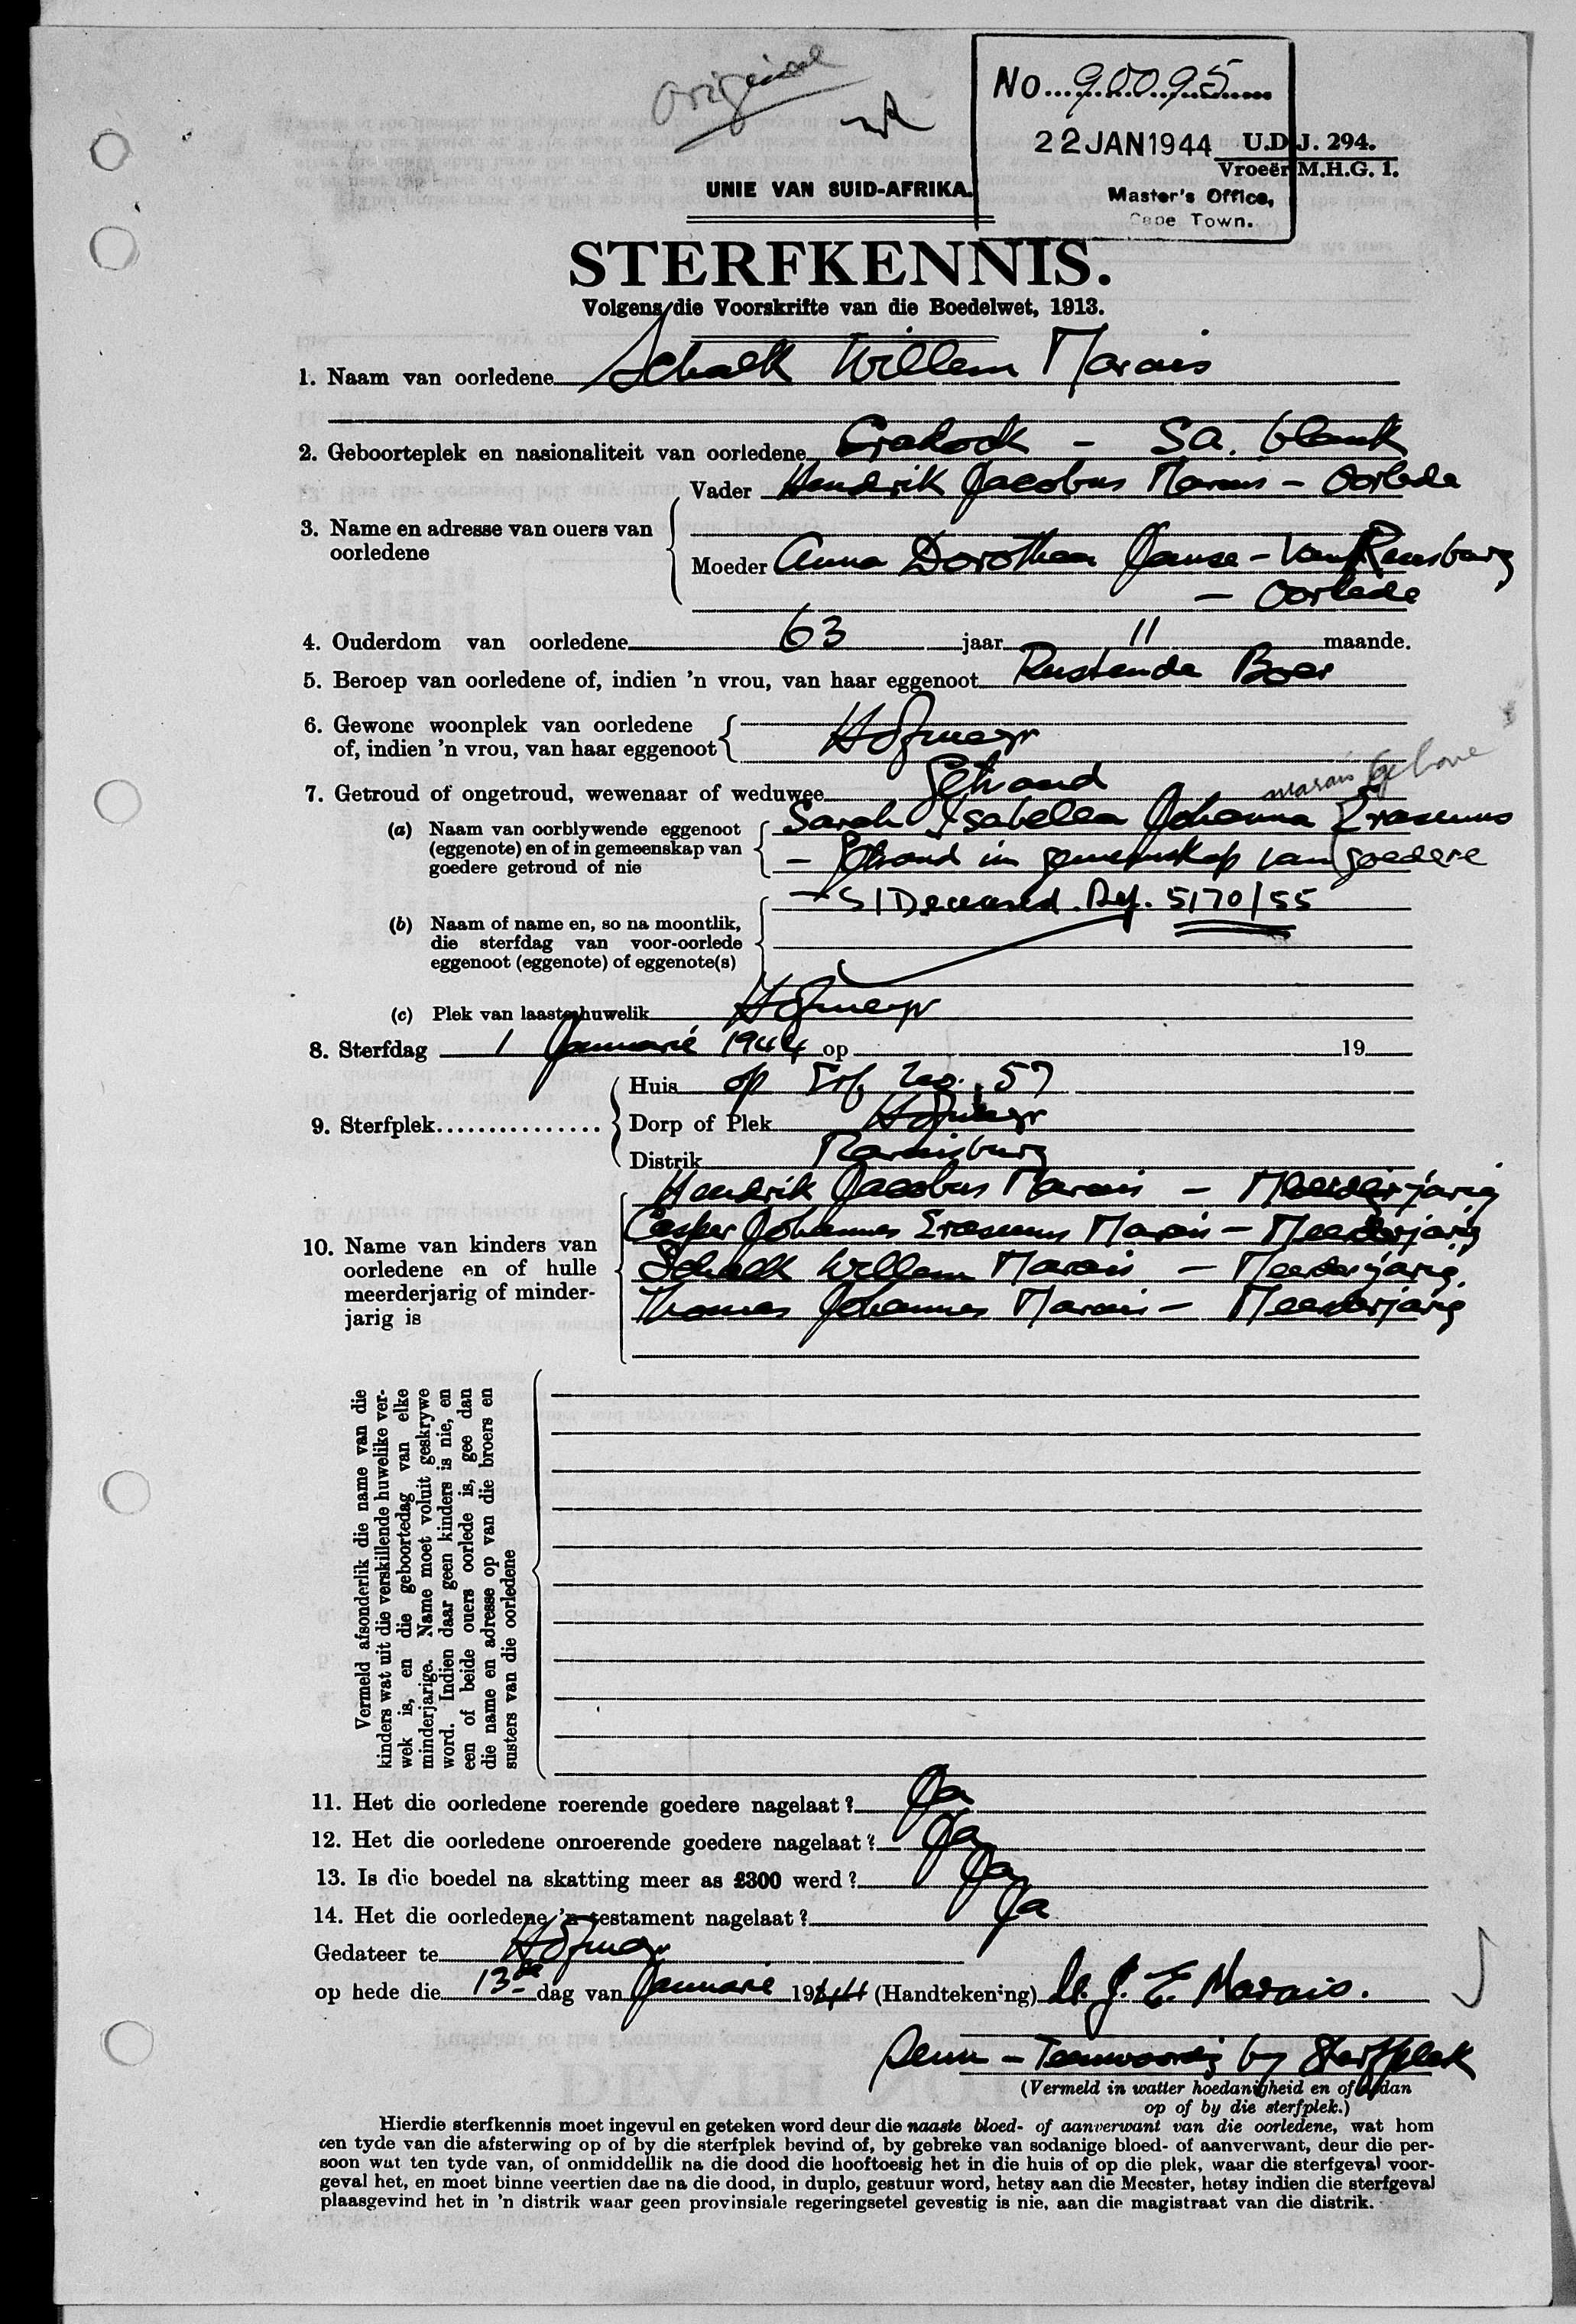 Original
No. 90095
22 JAN 1944
U.D.J. 294.
Vroeër M.H.G. 1.
Master's Office,
Cape Town.
UNIE VAN SUID-AFRIKA.
STERFKENNIS.
Volgens die Voorskrifte van die Boedelwet, 1913.
1. Naam van oorledene Schalk Willem Marais
2. Geboorteplek en nasionaliteit van oorledene Cradock - S.A. blank
3. Name en adresse van ouers van oorledene
Vader Hendrik Jacobus Marais - Oorlede
Moeder Anna Dorothea Janse-Van Rensburg
- Oorlede
4. Ouderdom van oorledene 63 jaar 11 maande.
5. Beroep van oorledene of, indien 'n vrou, van haar eggenoot Rustende Boer
6. Gewone woonplek van oorledene
of, indien 'n vrou, van haar eggenoot Hofmeyr
7. Getroud of ongetroud, wewenaar of weduwee Getroud
marais gebore
(a) Naam van oorblywende eggenoot
(eggenote) en of in gemeenskap van
goedere getroud of nie
Sarah Isabella Johanna Erasmus
- Getroud in gemeenskap van goedere
(b) Naam of name en, so na moontlik,
die sterfdag van voor-oorlede
eggenoot (eggenote) of eggenote(s)
S/Deceased. Ref. 5170/55
(c) Plek van laaste huwelik Hofmeyr
8. Sterfdag 1 Januarie 1944 op 19
9. Sterfplek
Huis op Erf No. 57
Dorp of Plek Hofmeyr
Distrik Maraisburg
10. Name van kinders van
oorledene en of hulle
meerderjarig of minder-
jarig is
Hendrik Jacobus Marais - Meerderjarig
Casper Johannes Erasmus Marais - Meerderjarig
Schalk Willem Marais - Meerderjarig.
Thomas Johannes Marais - Meerderjarig
Vermeld afsonderlik die name van die
kinders wat uit die verskillende huwelike ver-
wek is, en die geboortedag van elke
minderjarige. Name moet voluit geskrywe
word. Indien daar geen kinders is nie, en
een of beide ouers oorlede is, gee dan
die name en adresse op van die broers en
susters van die oorledene
11. Het die oorledene roerende goedere nagelaat? Ja
12. Het die oorledene onroerende goedere nagelaat? Ja
13. Is die boedel na skatting meer as £300 werd? Ja
14. Het die oorledene 'n testament nagelaat? Ja
Gedateer te Hofmeyr
op hede die 13de dag van Januarie 1944 (Handtekening) C. J. E. Marais.
Seun - Teenwoordig by Sterfplek
(Vermeld in watter hoedanigheid en of dan
op of by die sterfplek.)
Hierdie sterfkennis moet ingevul en geteken word deur die naaste bloed- of aanverwant van die oorledene, wat hom
ten tyde van die afsterwing op of by die sterfplek bevind of, by gebreke van sodanige bloed- of aanverwant, deur die per-
soon wat ten tyde van, of onmiddellik na die dood die hooftoesig het in die huis of op die plek, waar die sterfgeval voor-
geval het, en moet binne veertien dae na die dood, in duplo, gestuur word, hetsy aan die Meester, hetsy indien die sterfgeval
plaasgevind het in 'n distrik waar geen provinsiale regeringsetel gevestig is nie, aan die magistraat van die distrik.